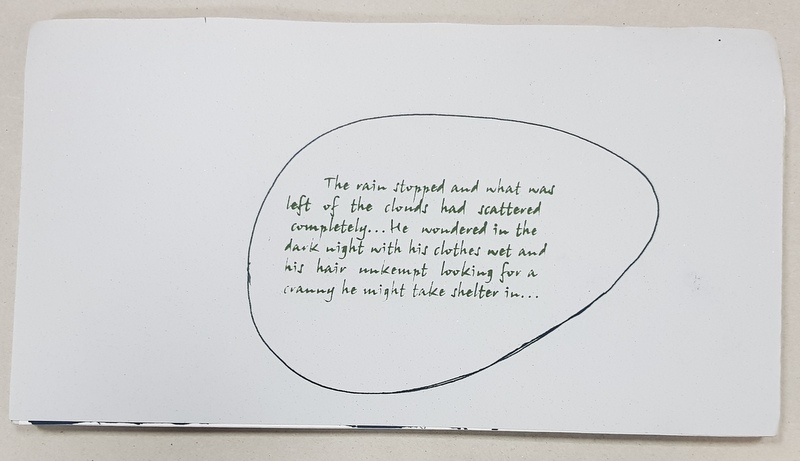 The rain stopped and what was
left of the clouds had scattered
completely... He wondered in the
dark night with his clothes wet and
his hair unkempt looking for a
cranny he might take shelter in...